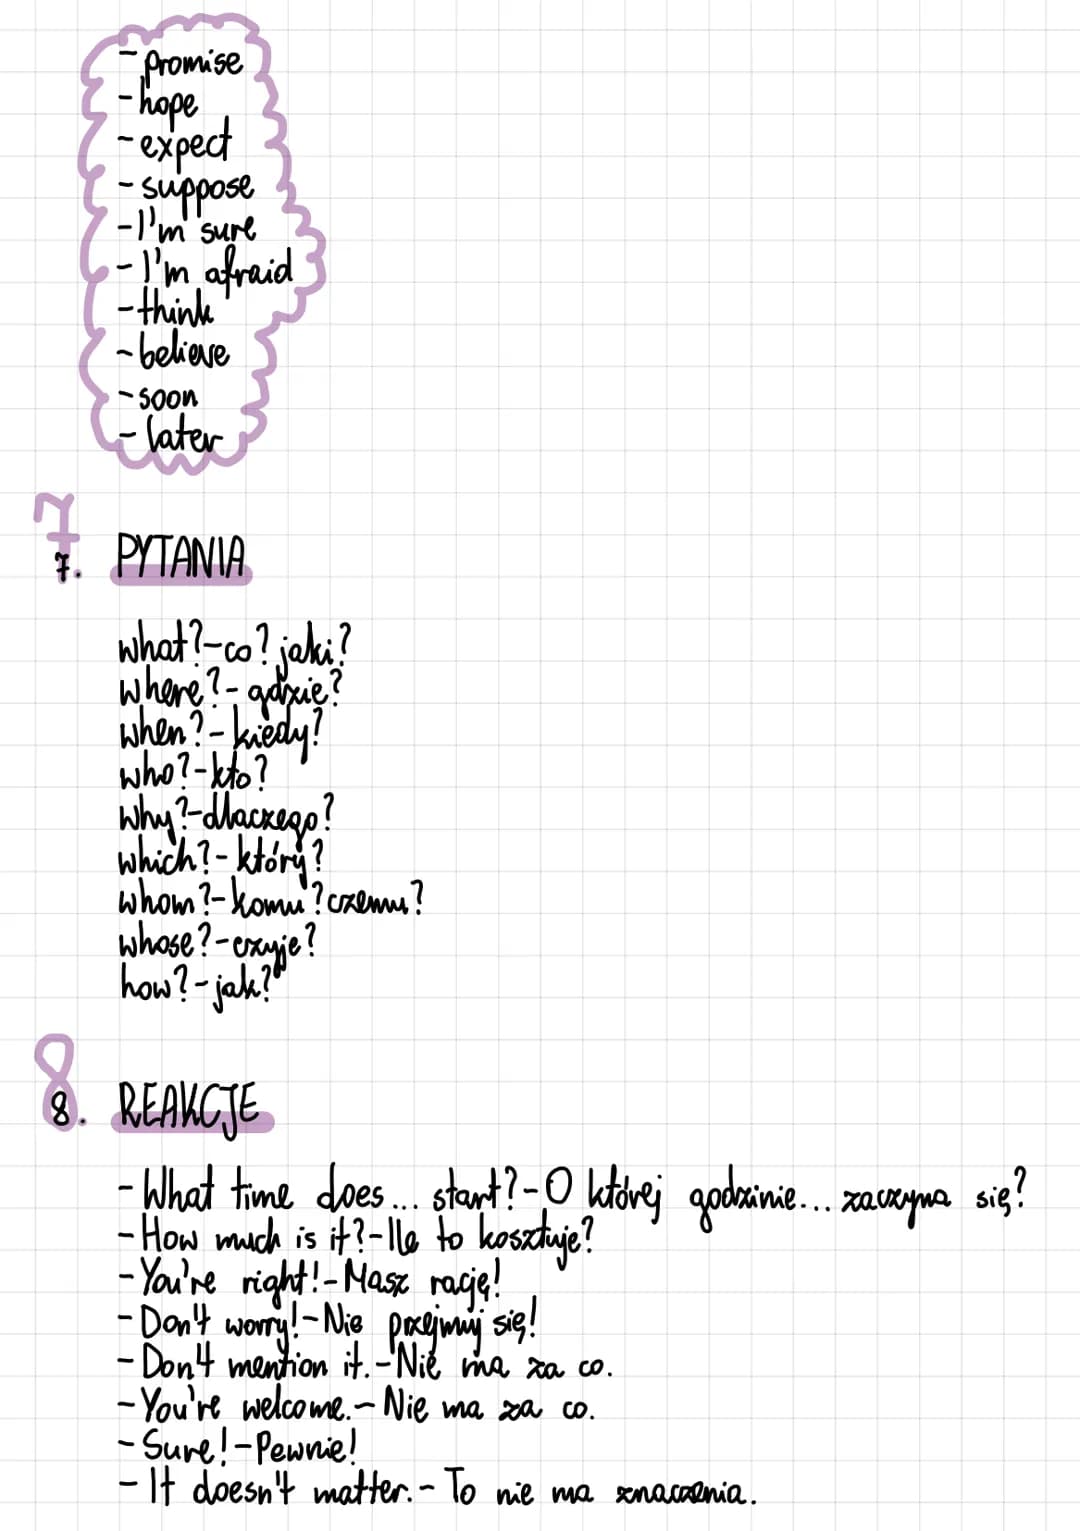 - promise
- hope
- expect
- suppose
- I'm sure
- I'm afraid
- think
- believe
- soon
- later
7
7. PYTANIA
what?-co? jaki?
where?- gdzie?
when?- kiedy?
who?-kto?
why?-dlaczego?
which?- który?
whom?- komu? czemu?
whose?-czyje?
how?- jak?
8
8. REAKCJE
- What time does... start?- O której godzinie... zaczyna się?
- How much is it?- Ile to kosztuje?
- You're right!- Masz rację!
- Don't worry!- Nie przejmuj się!
- Don't mention it.- Nie ma za co.
- You're welcome.- Nie ma za co.
- Sure!- Pewnie!
- It doesn't matter.- To nie ma znaczenia.